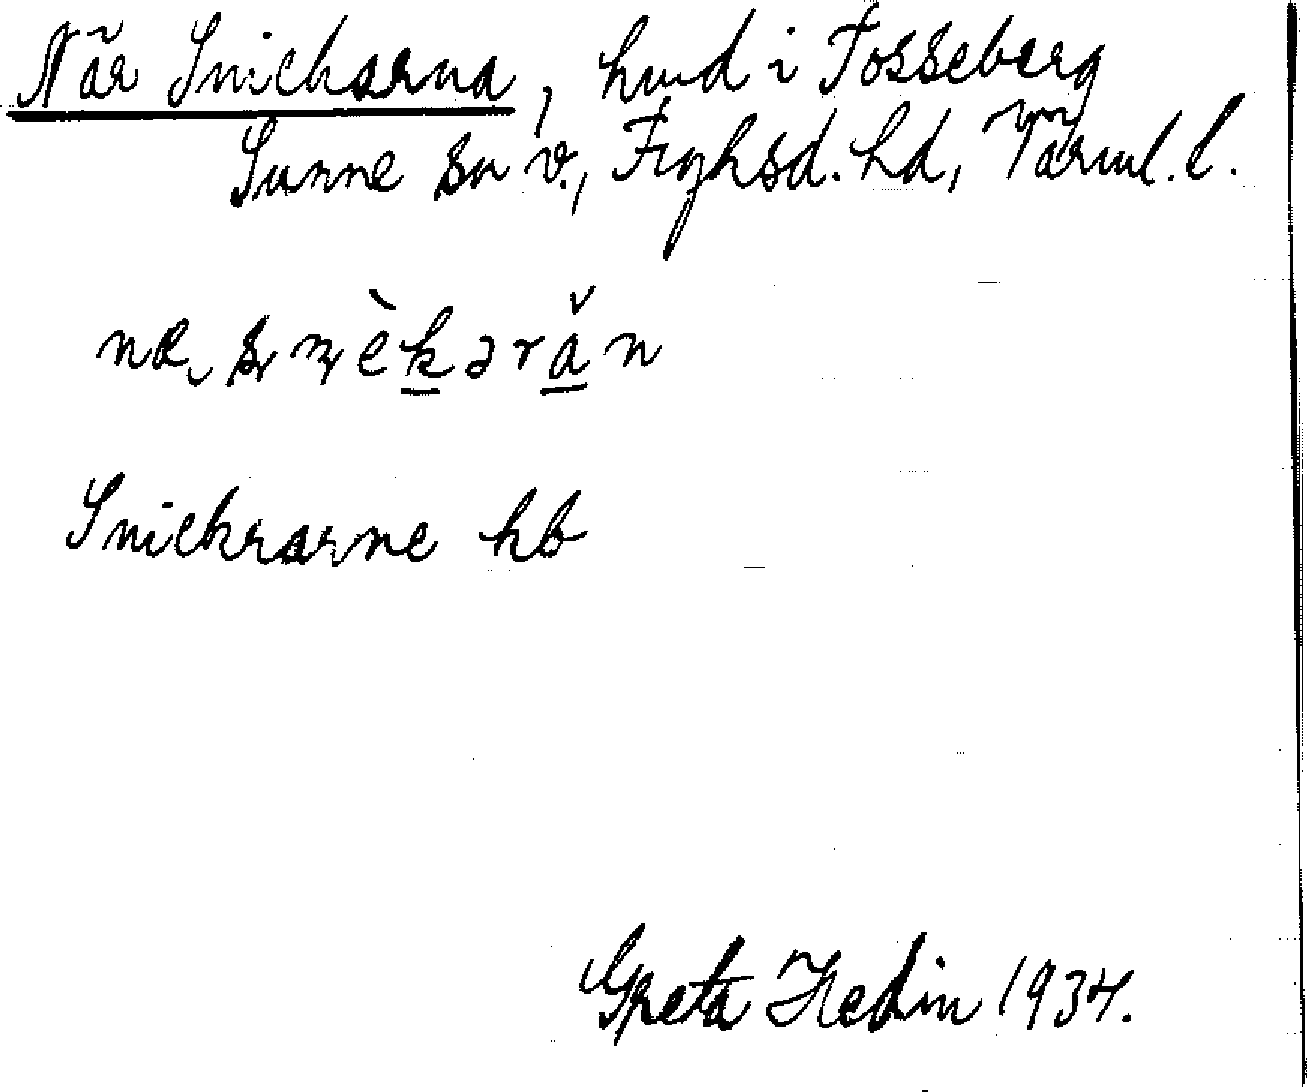 När Snickarna, hmd i Fosseberg
Sunne sn v., Fryksd. hd, Värml. l.
Snickrarne hb
Greta Hedin 1934.